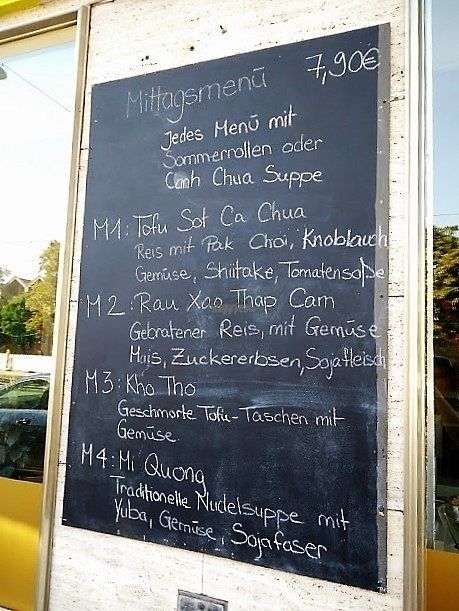 Mittagsmenü 7,90€
Jedes Menü mit
Sommerrollen oder
Canh Chua Suppe
M1: Tofu Sot Ca Chua
Reis mit Pak Choi, Knoblauch
Gemüse, Shiitake, Tomatensoße
M2: Rau Xao Thap Cam
Gebratener Reis, mit Gemüse
Mais, Zuckererbsen, Sojafleisch
M3: Kho Tho
Geschmorte Tofu-Taschen mit
Gemüse.
M4: Mi Quong
Traditionelle Nudelsuppe mit
Yuba, Gemüse, Sojafaser